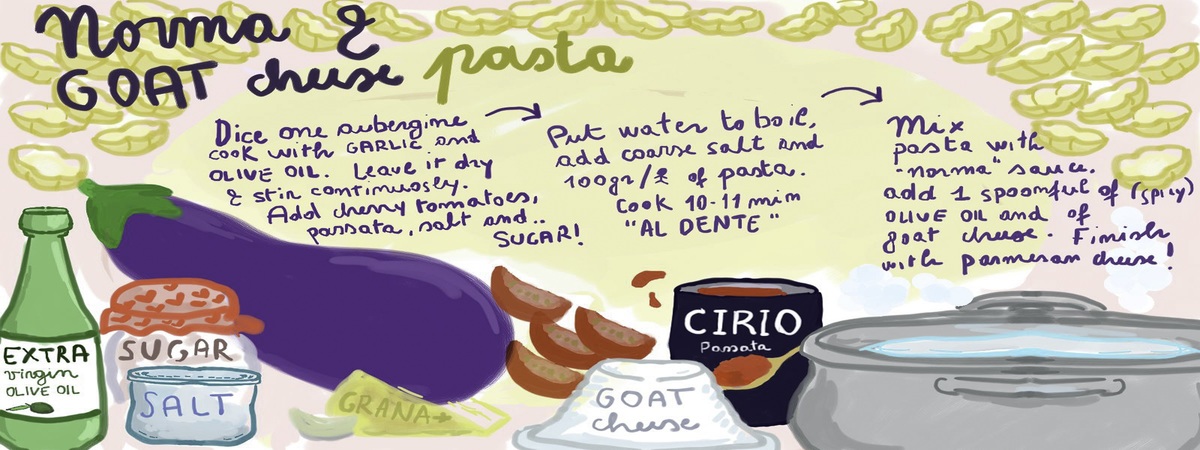 Norma &
GOAT cheese pasta
Dice one aubergine
cook with GARLIC and
OLIVE OIL. Leave it dry
& stir continuosly.
Add cherry tomatoes,
passata, salt and..
SUGAR!
Put water to boil,
add coarse salt and
100gr/ of pasta.
Cook 10-11 min
"AL DENTE"
Mix
pasta with
"norma" sauce.
add 1 spoonful of (spicy)
OLIVE OIL and of
goat cheese. Finish
with parmesan cheese!
EXTRA
virgin
OLIVE OIL
SUGAR
SALT
GRANA
GOAT
cheese
CIRIO
Passata